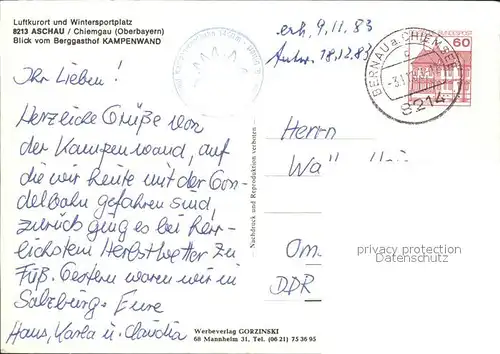 Luftkurort und Wintersportplatz
8213 ASCHAU / Chiemgau (Oberbayern)
Blick vom Berggasthof KAMPENWAND
erh. 9.11.83
Antw. 18.12.83
BERNAU a. CHIEMSEE
8214
DEUTSCHE BUNDESPOST
60
Ihr Lieben!
Herzliche Grüße von
der Kampenwand, auf
die wir heute mit der Gon-
delbahn gefahren sind,
zurück ging es bei herr-
lichstem Herbstwetter zu
Fuß. Gestern waren wir in
Salzburg. Eure
Hans, Karla u. Claudia
Nachdruck und Reproduktion verboten
Herrn
Wa
Om
DDR
privacy protection
Datenschutz
Werbeverlag GORZINSKI
68 Mannheim 31, Tel. (06 21) 75 36 95